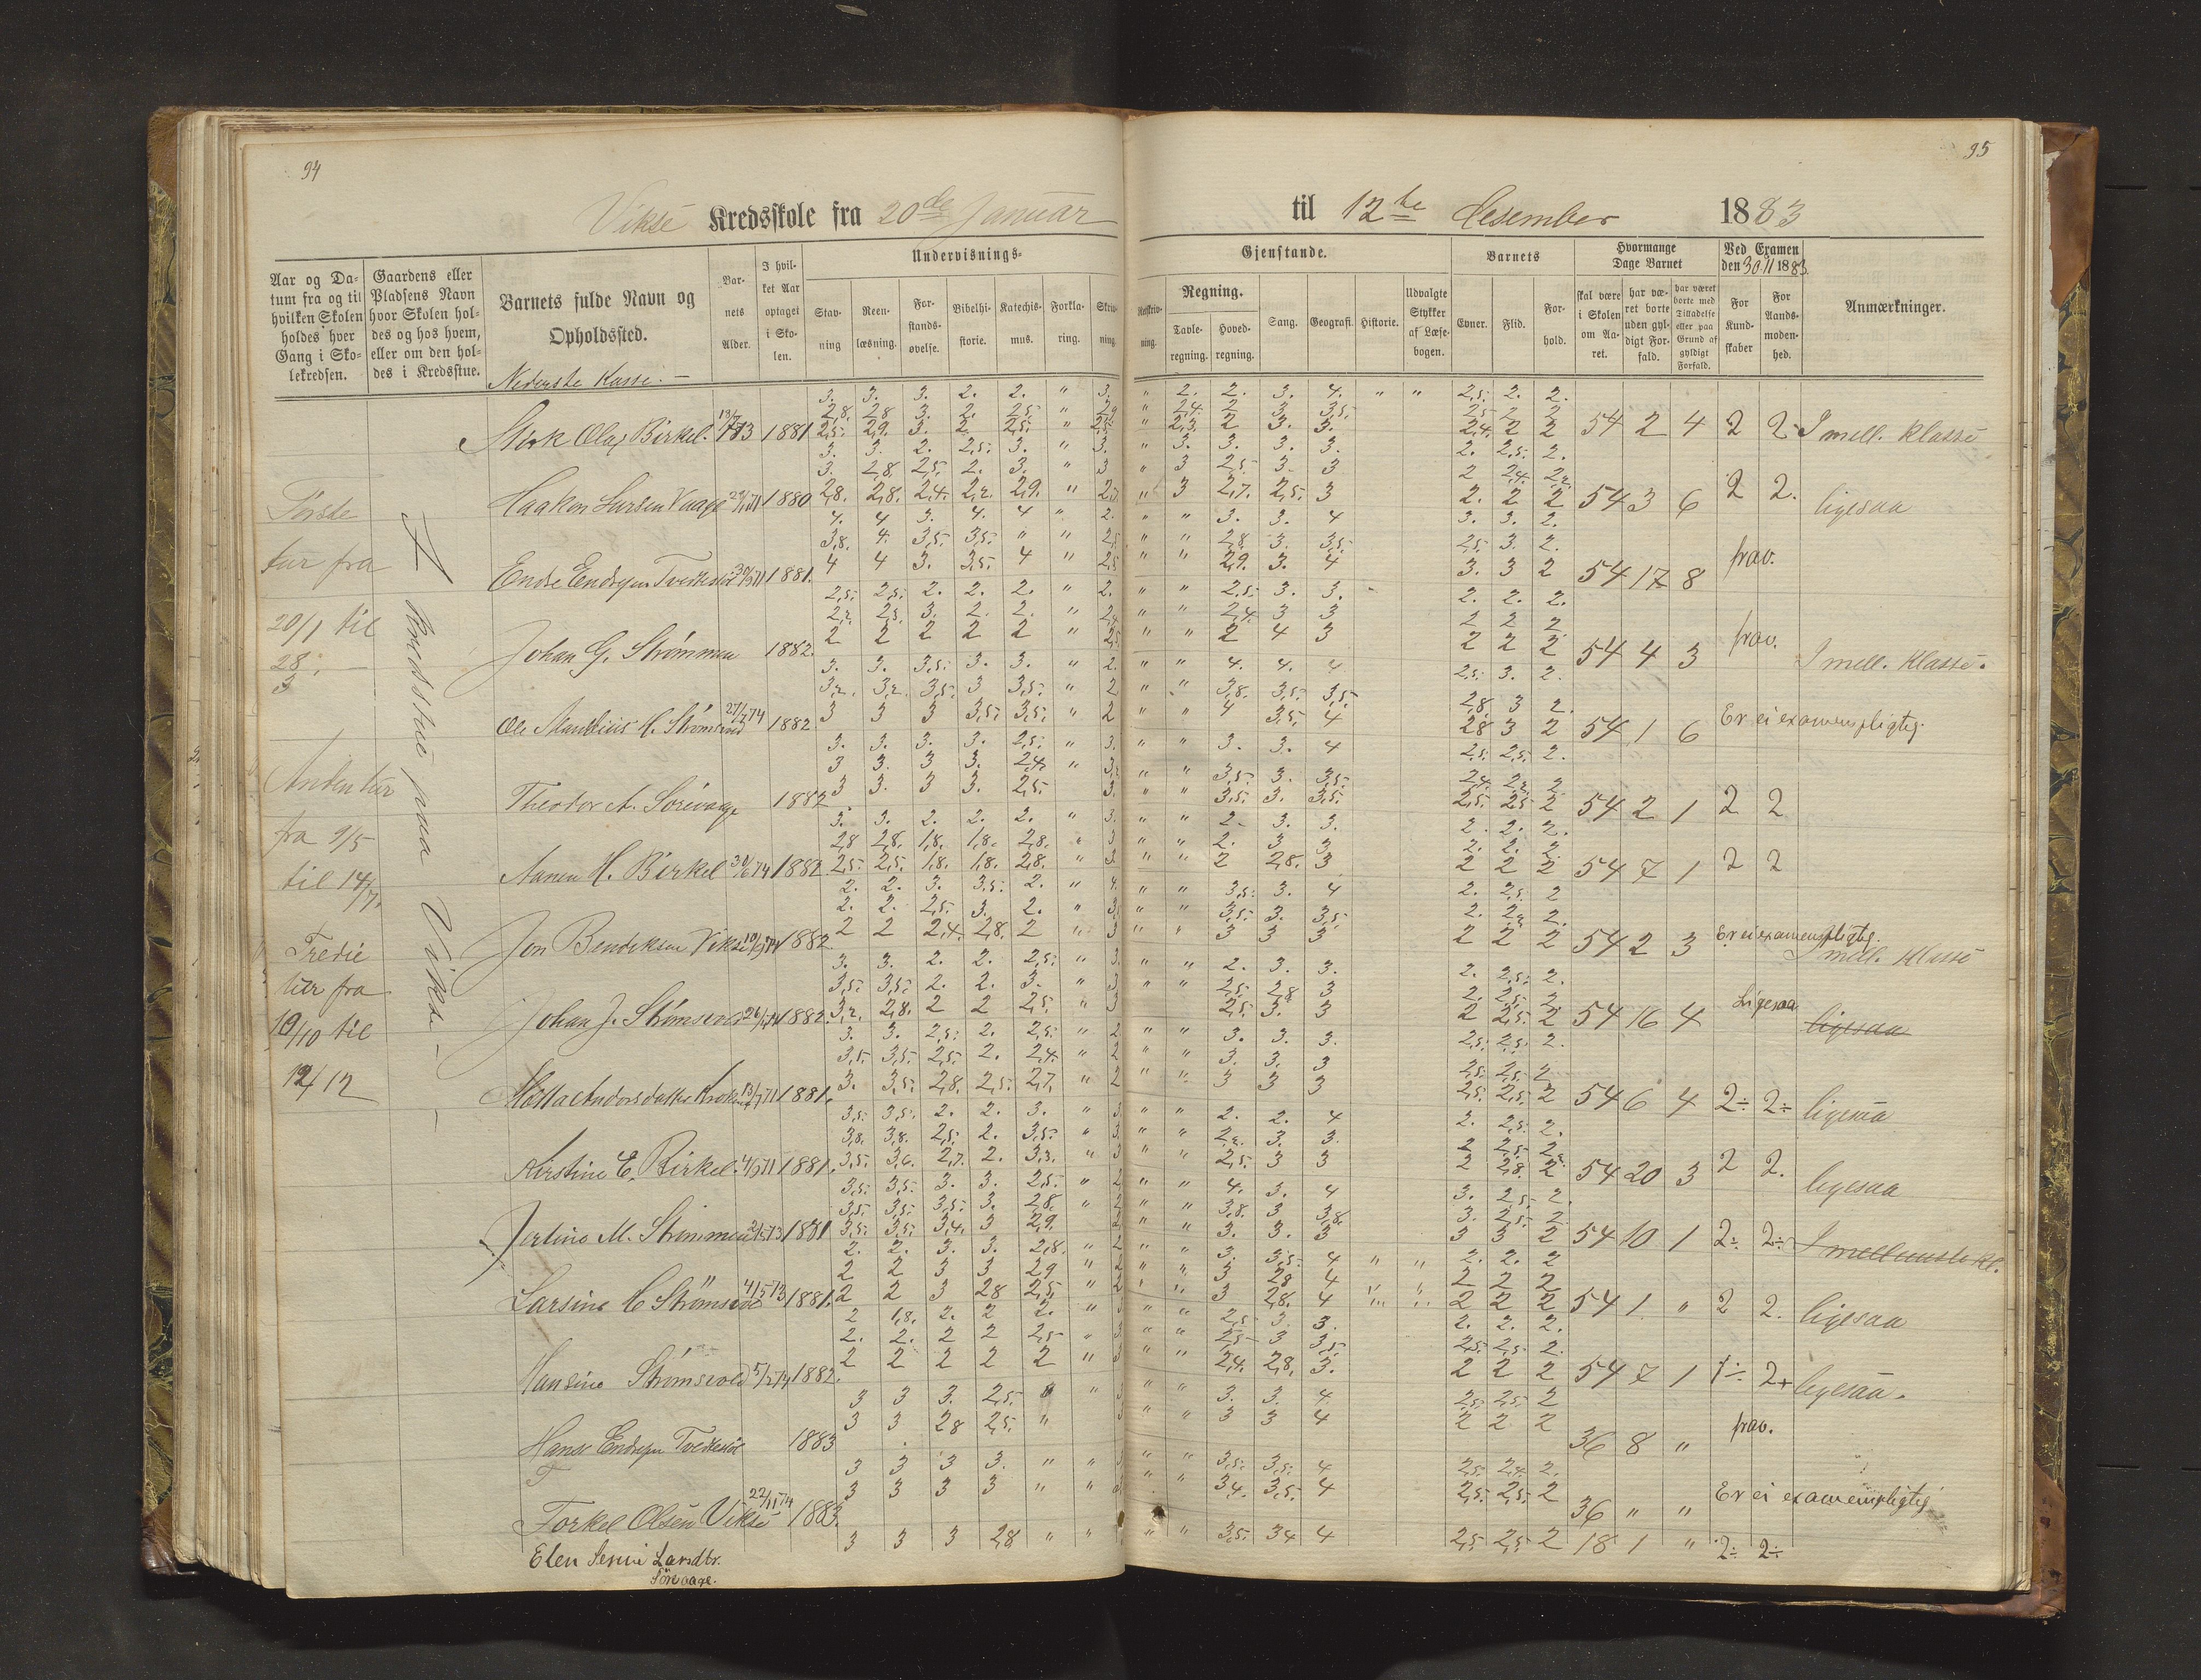 94
95
Vikse Kredsskole fra 20de Januar til 12te Desember 1883
Undervisnings- Gjenstande.
Aar og Datum fra og til hvilken Skolen holdes hver Gang i Skolekredsen.
Gaardens eller Pladsens Navn hvor Skolen holdes og hos hvem, eller om den holdes i Kredsstue.
Barnets fulde Navn og Opholdssted.
Barnets Alder.
I hvilket Aar optaget i Skolen.
Stavning
Reenlæsning.
Forstandsøvelse.
Bibelhistorie.
Katechismus.
Forklaring.
Skrivning.
Retskrivning.
Regning.
Tavleregning.
Hovedregning.
Sang.
Geografi.
Historie.
Udvalgte Stykker af Læsebogen.
Barnets
Evner.
Flid.
Forhold.
Hvormange Dage Barnet
skal være i Skolen om Aaret.
har været borte uden gyldigt Forfald.
har været borte med Tilladelse eller paa Grund af gyldigt Forfald.
Ved Examen den 30.11 1883.
For Kundskaber
For Aandsmodenhed.
Anmærkninger.
Nederste Klasse. —
Første
tur fra
20/1 til
28/3 —
Anden tur
fra 9/5
til 14/7.
Tredie
tur fra
10/10 til
12/12
I Kredsstue paa Vikse —
3. 3. 3. 2. 2. " 3. " 2. 2. 3. 4. " " 2,5. 2. 2.
2,8. 2,8 3. 2. 2,5. " 2,9 " 2,4. 2 3 3,5. 2,5 2 2
Olaj Birkel. 1881 2,5. 2,9. 3. 2. 2,5. " 2,5. " 2,3 2 3. 3. 2,4. 2 2 54 2 4 2 2 I mell. klasse
3. 3. 2. 2,5. 3. " 3. " 3. 3. 3. 3. 2. 2,5. 2.
3. 2,8. 2,5. 2. 3. " 3 " 3 2,5. 3. 3 2 2,4. 2,2.
Haakon Larsen Vaage 1880 2,8. 2,8. 2,4. 2,2. 2,9. " " 3 2,7. 2,5. 3 2. 2 2 54 3 6 2 2. ligesaa
4. 4 3. 4. 4 " 2. " " 3. 3. 4 3. 3. 2.
3,8. 4. 3,5. 3,5. " " 2,5 " " 2,8. 3. 3,5. 2,5. 3. 2.
Endre Endresen 1881. 4 4 3. 3,5. 4 " 2,5 " " 2,9. 3. 4 3. 3 2 54 17 8 frav.
2,5. 2,5. 2. 2. 2. " 2. " " 2,5. 3. 3. 2. 2. 2.
2,2. 2,5. 3. 2. 2. " " " 2,4. 3 3 2 2 2
Johan G. Strømmen 1882. 2 2 2 2 2 " 2,5 " " 2 4 3 2 2 2 54 4 3 frav. I mell. klasse.
3. 3. 3,5. 3. 3. " 2. " " 4. 4. 4 2,5. 3. 2.
3,2. 3,2. 3,5. 3 3,5. " 2 " " 3,8. 3,5. 3,5. 2,8. 3 2.
27/7 74 1882. 3 3 3 3,5. 3,5. " 2 " " 4 3,5. 4 2,8 3 2 54 1 6 Er ei examenspligtig.
3. 3. 3. 3. 2,5. " 3. " " 3. 3. 4 2,5. 2,5. 2.
3 3. 3 3. 2,4. " " " 3,5. 3. 3,5. 2,4. 2,2 2
Theodor A. Sørevaage 1882 3 3. 3 3. 2,5. 3. " " 3,5. 3. 3,5. 2,5. 2,5 2 54 2 1 2 2
3. 3. 2. 2. 2. " 3. " " 2. 3. 3. 2. 2. 2.
2,8 2,8. 1,8. 1,8. 2,8. " 3 " " 2. 3 3 2. 2. 2.
H. Birkel 30/6 74 1882 2,5. 2,5. 1,8. 1,8. 2,8. " 3 " " 2 2,8. 3 2 2 2 54 7 1 2 2
2. 2. 3. 3,5. 2. " 4. " " 3,5. 3. 4 2. 2,5. 2
2. 2. 2,5. 3. 2. " " " 3,5. 3. 3,5. 2. 2,2 2.
Jon Bendiksen Vikse 1882. 2 2 2,4. 2,8. 2 " 3 " " 3 3 3 2 2 2 54 2 3 Er ei examenspligtig. I mell. klasse
3. 3. 2. 2. 2,5. " 3. " " 2. 3. 3. 2. 2,5. 2.
3,5. 3,5. 2. 2. 3. " 3 " " 2,5. 2,8 3 2. 2,5. 2
Johan J. Strømsvold 1882. 3,2. 2,8. 2 2 2,5. " 3 2,5. 3. 3 2 2,5. 2 54 16 4 Ligesaa ligesaa
3. 3. 2,5. 2. 2,5. " 2 " " 3. 3. 3. 2,5. 2,5. 2.
3,5. 3,5. 2,5. 2. 2,4. " 2 " " 3. 3. 3 2,5. 2,5. 2
1881. 3. 3,5. 2,8. 2,5. 2,7. " 2 " " 3 3 3 2,5. 2,5. 2 54 6 4 2÷ 2÷ ligesaa
3,5. 3,5. 2. 2. 3. " 3. " " 2. 2. 4 2. 2,5. 2.
3,8. 3,8. 2,5. 2. 3,5. " 3. " " 2,2. 3. 3. 2 2,5 2
Kirstine E. Birkel 1881. 3,5. 3,6. 2,7. 2. 3,3. " 3 " " 2,5. 3 3 2 2,8. 2 54 20 3 2 2. ligesaa
3,5. 3,5. 3. 3. 2,5. " 2 " " 4. 3. 4 3. 2,5. 2.
3,5. 3,5. 3,5. 3. 2,8. " " " 3,8. 3 3,8. 3. 2,5. 2
M. Strømmen 1881 3,5. 3,5. 3,4. 3 2,9. " " 3. 3. 3 3 3 2 54 10 1 2÷ 2÷ I mellemste kl.
2. 2. 3. 3. 2,8. " 2 " " 3. 3,5. 4 " " 2. 2. 2
2 2 3 3 2,9 " 2 " " 3 2,8 4 " " 2 2 2
Larsine 1881. 2 2 3 2,8 2,5. " 2 " " 3 2,8. 4 " " 2 2 2 54 1 " 2 2. ligesaa
2 1,8. 2. 2 2. " 3 " " 2,5. 3. 3. 2. 2. 2.
2. 2. 2 2 2,5 " " " 2,5 3 3,5. 2,5. 2,5. 2.
Hansine Strømsvold 1882. 2 2 2 2 2 " 3 " " 2,4. 2,8. 3. 2 2 2 54 7 1 1÷ 2+ ligesaa.
3 3 3. 2,5. " " " 3. 3. 4 2,5. 2,5. 2
3 3 2,8 2,5. " " " 3 3 4 2 2 2
Hans Endresen 1883 36 8 " frav.
3 3 3 3. " " " " 3,5. 3,5. 4 2,5. 2,4. 2.
3 3 3 3 " " " 3,4. 3,5. 4 2,5. 2,5. 2
Torkel Olsen Vikse 22/11 74 1883. 36 " " Er ei examenspligtig
Elen Larsdtr. 3 3 3 2,8 " " " " 3,5. 3,4 4 2,5. 2,5. 2 18 1 " 2÷ 2÷
Sørevaage.